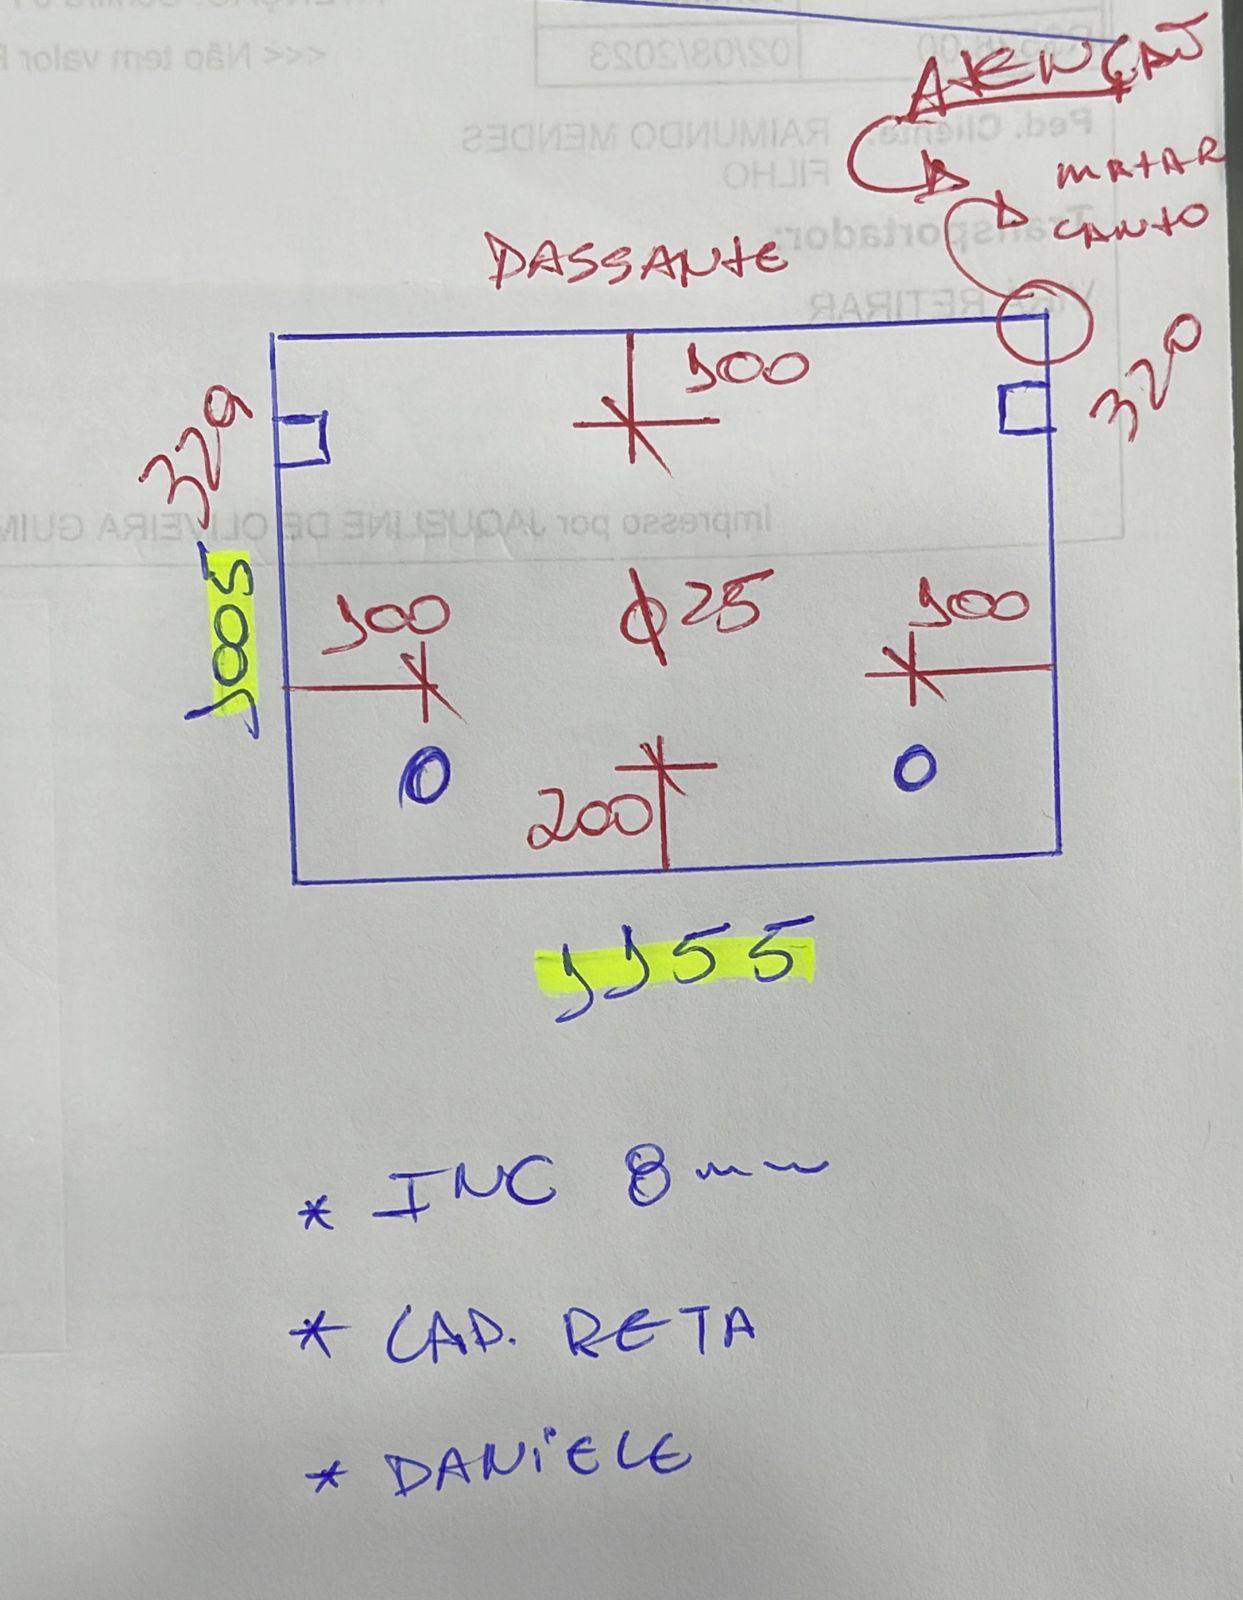 ATENÇÃO
MATAR
CANTO
PASSANTE
100
329
320
1005
100
φ25
100
200
1155
* INC 8mm
* LAP. RETA
* DANiELE
02/08/2023
<<< Não tem valor
Ped. Cliente: RAIMUNDO MENDES
FILHO
Transportador:
RETIRAR
Impresso por JAQUELINE DE OLIVEIRA GUIM